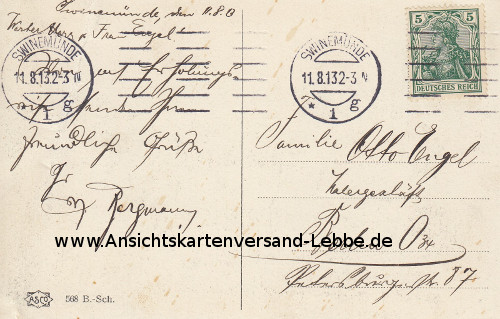 Swinemünde, den 11.8.13
Werter Herr u. Frau Engel!
SWINEMÜNDE
11.8.13 2-3 N
* 1 g
SWINEMÜNDE
11.8.13 2-3 N
* 1 g
5 5
DEUTSCHES REICH
auf Erholungs
sendet Ihnen
freundliche Grüße
Ihr
Bergmann
Familie
Otto Engel
Malergeschäft
Berlin O 34
Petersburger Str. 87
www.Ansichtskartenversand-Lebbe.de
ASCO
568 B.-Sch.